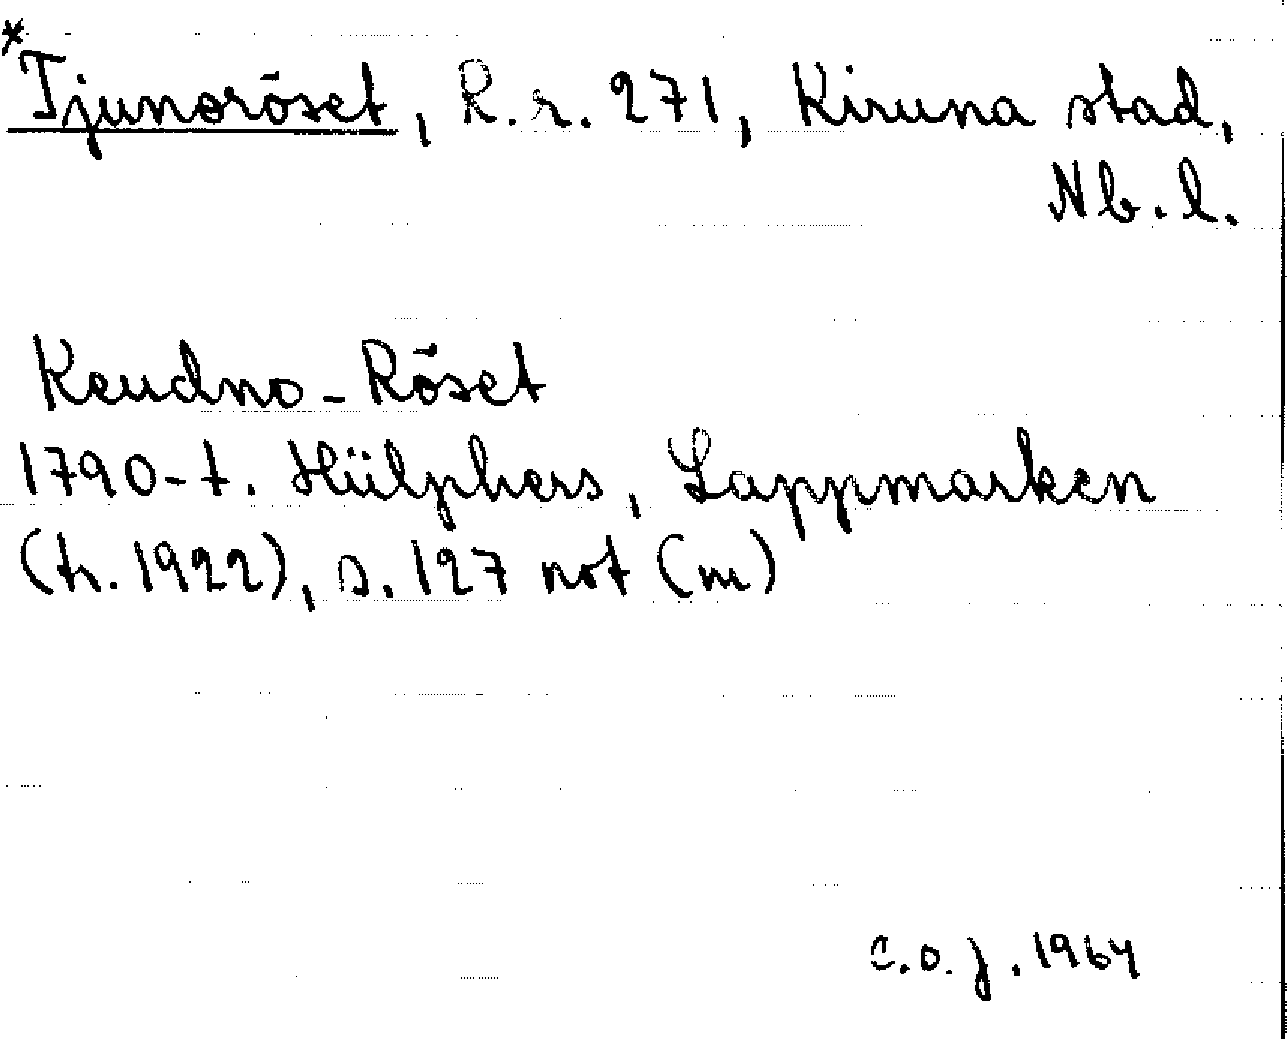 *Tjunoröset, R.r. 271, Kiruna stad,
Nb.l.
Keudno-Röset
1790-t. Hülphers, Lappmarken
(tr. 1922), s. 127 not (m)
C.O.J. 1964